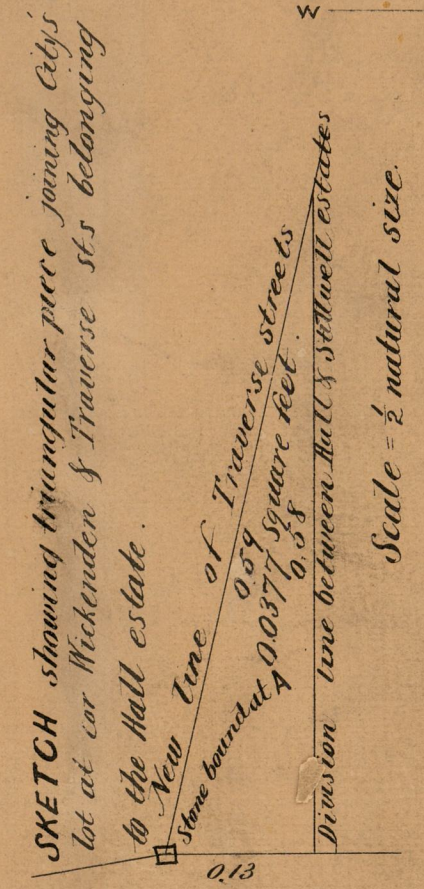 SKETCH showing triangular piece joining City's
lot at cor Wickenden & Traverse sts belonging
to the Hall estate.
New line of Traverse streets
0.59
Stone bound at A
0.0377 square feet.
0.58
Division line between Hall & Stillwell estates
0.13
Scale = 1/2 natural size.
W